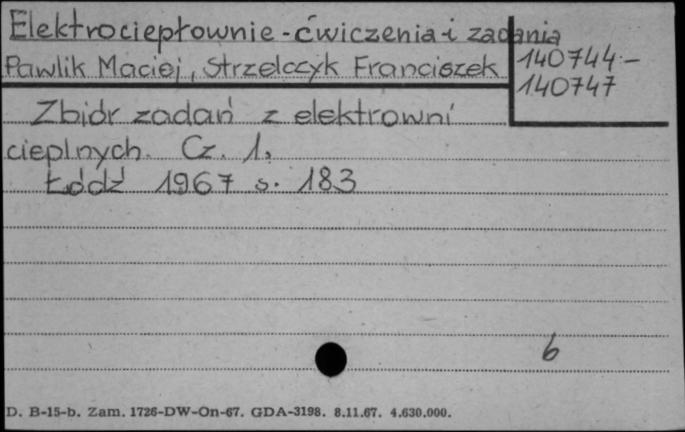 Elektrociepłownie - ćwiczenia i zadania
140744 -
140747
Pawlik Maciej, Strzelczyk Franciszek
Zbiór zadań z elektrowni
cieplnych. Cz. 1.
Łódź 1967 s. 183
b
D. B-15-b. Zam. 1726-DW-On-67. GDA-3198. 8.11.67. 4.630.000.